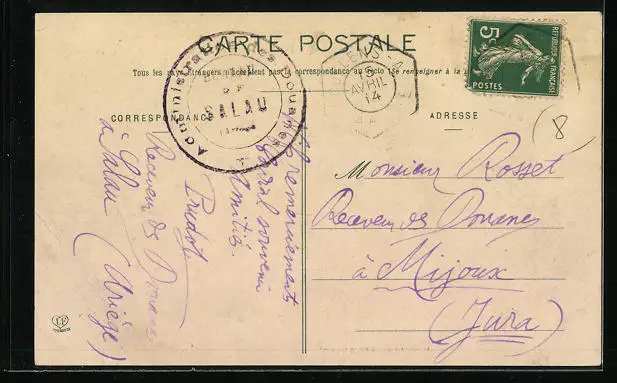 CARTE POSTALE
Tous les pays étrangers n'acceptent pas la correspondance au recto (Se renseigner à la
CORRESPONDANCE
ADRESSE
Administration des Douanes
BUREAU
DE
SALAU
5
AVRIL
14
5c
REPUBLIQUE FRANÇAISE
POSTES
8
remerciements
souvenir
Amitiés
Pudot
Receveur des Douanes
à Salau (Ariège)
Monsieur Rosset
Receveur des Douanes
à Mijoux
(Jura)
LF